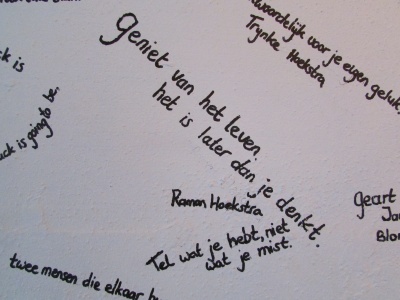 woordelijk voor je eigen geluk.
Trynke Hoekstra
ck is
uck is going to be.
Geniet van het leven.
het is later dan je denkt.
Ramon Hoekstra
Tel wat je hebt, niet
wat je mist.
geart
Ja
Blo
twee mensen die elkaar